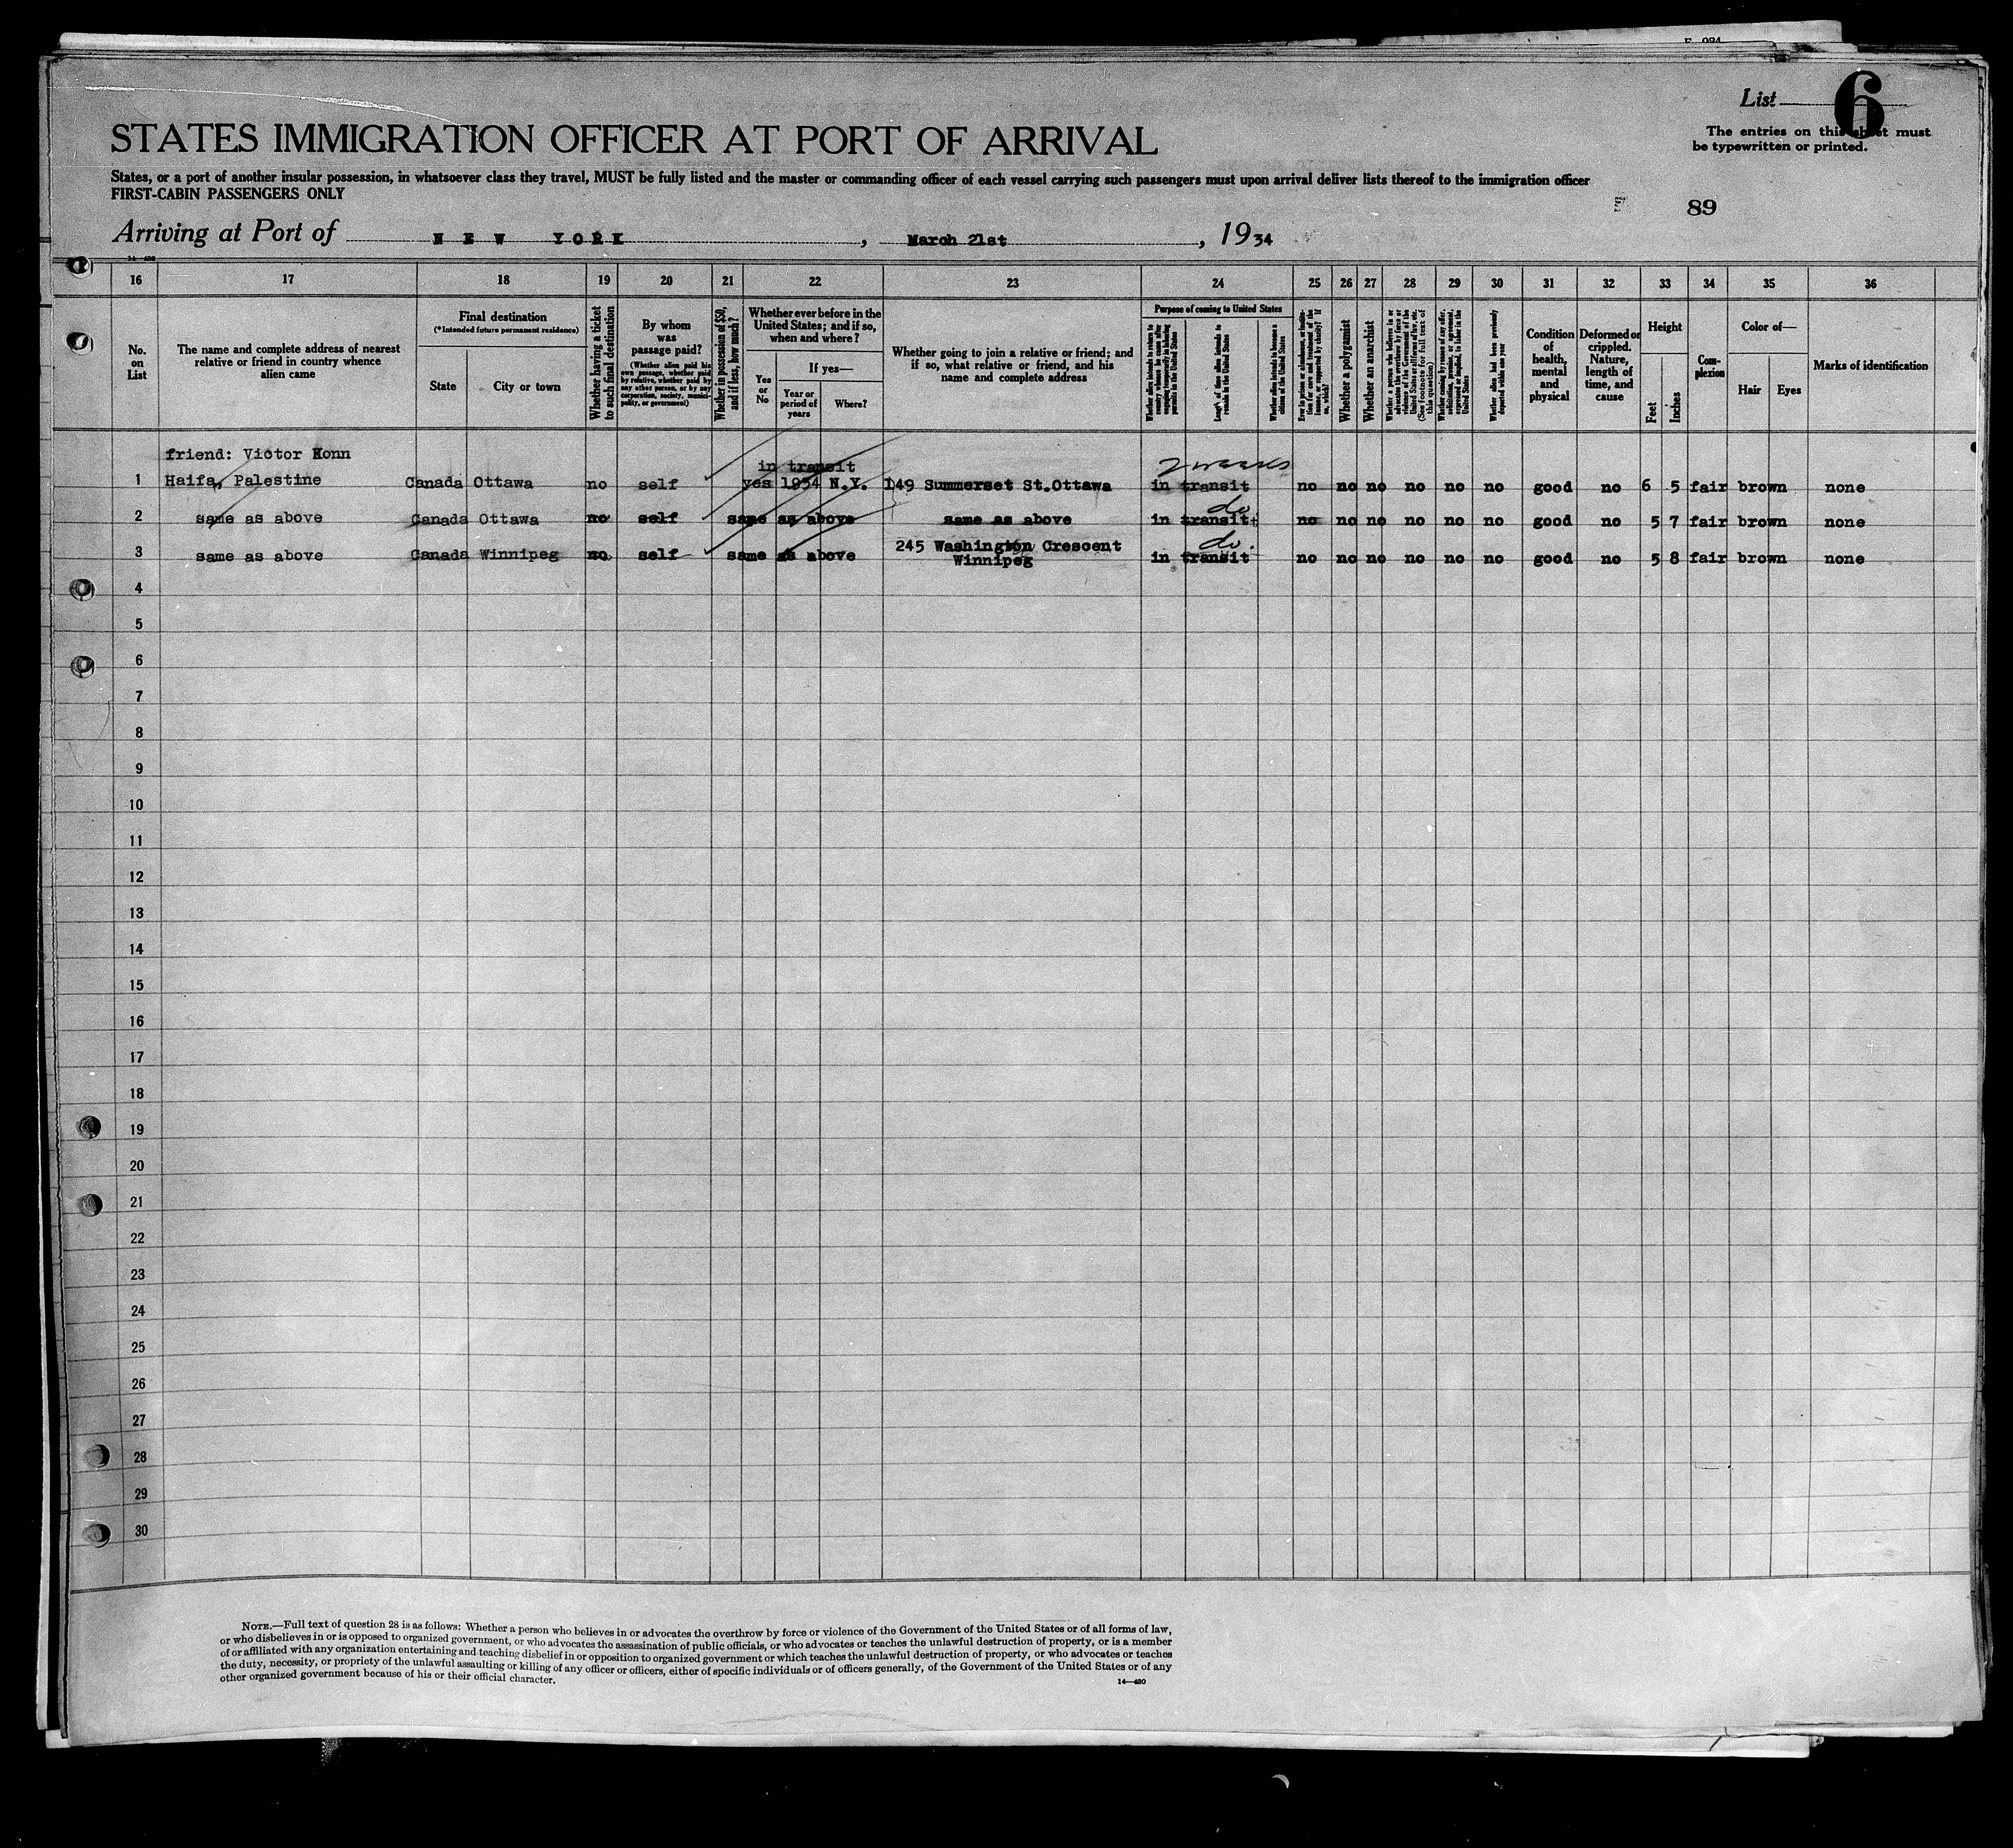 List 6
STATES IMMIGRATION OFFICER AT PORT OF ARRIVAL
The entries on this sheet must
be typewritten or printed.
States, or a port of another insular possession, in whatsoever class they travel, MUST be fully listed and the master or commanding officer of each vessel carrying such passengers must upon arrival deliver lists thereof to the immigration officer
FIRST-CABIN PASSENGERS ONLY
89
Arriving at Port of NEW YORK, March 21st, 1934
16 17 18 19 20 21 22 23 24 25 26 27 28 29 30 31 32 33 34 35 36
No. on List
The name and complete address of nearest
relative or friend in country whence
alien came
Final destination
(*Intended future permanent residence)
State
City or town
Whether having a ticket to such final destination
By whom was passage paid?
(Whether alien paid his own passage, whether paid by relative, whether paid by any other person, or by any corporation, society, municipality, or government)
Whether in possession of $50, and if less, how much?
Whether ever before in the
United States; and if so,
when and where?
Yes or No
If yes—
Year or period of years
Where?
Whether going to join a relative or friend; and
if so, what relative or friend, and his
name and complete address
Purpose of coming to United States
Length of time alien intends to remain in the United States
Whether alien intends to become a citizen of the United States
Whether a polygamist
Whether an anarchist
(See footnote for full text of this question)
Whether alien had been previously deported within one year
Condition of health, mental and physical
Deformed or crippled. Nature, length of time, and cause
Height
Feet
Inches
Complexion
Color of—
Hair
Eyes
Marks of identification
friend: Victor Konn
in transit
2 weeks
1 Haifa, Palestine Canada Ottawa no self yes 1934 N.Y. 149 Summerset St.Ottawa in transit no no no no no no good no 6 5 fair brown none
do
2 same as above Canada Ottawa no self same as above same as above in transit no no no no no no good no 5 7 fair brown none
245 Washington Crescent
do.
3 same as above Canada Winnipeg no self same as above Winnipeg in transit no no no no no no good no 5 8 fair brown none
4
5
6
7
8
9
10
11
12
13
14
15
16
17
18
19
20
21
22
23
24
25
26
27
28
29
30
NOTE.—Full text of question 28 is as follows: Whether a person who believes in or advocates the overthrow by force or violence of the Government of the United States or of all forms of law,
or who disbelieves in or is opposed to organized government, or who advocates the assassination of public officials, or who advocates or teaches the unlawful destruction of property, or is a member
of or affiliated with any organization entertaining and teaching disbelief in or opposition to organized government or which teaches the unlawful destruction of property, or who advocates or teaches
the duty, necessity, or propriety of the unlawful assaulting or killing of any officer or officers, either of specific individuals or of officers generally, of the Government of the United States or of any
other organized government because of his or their official character.
14—480